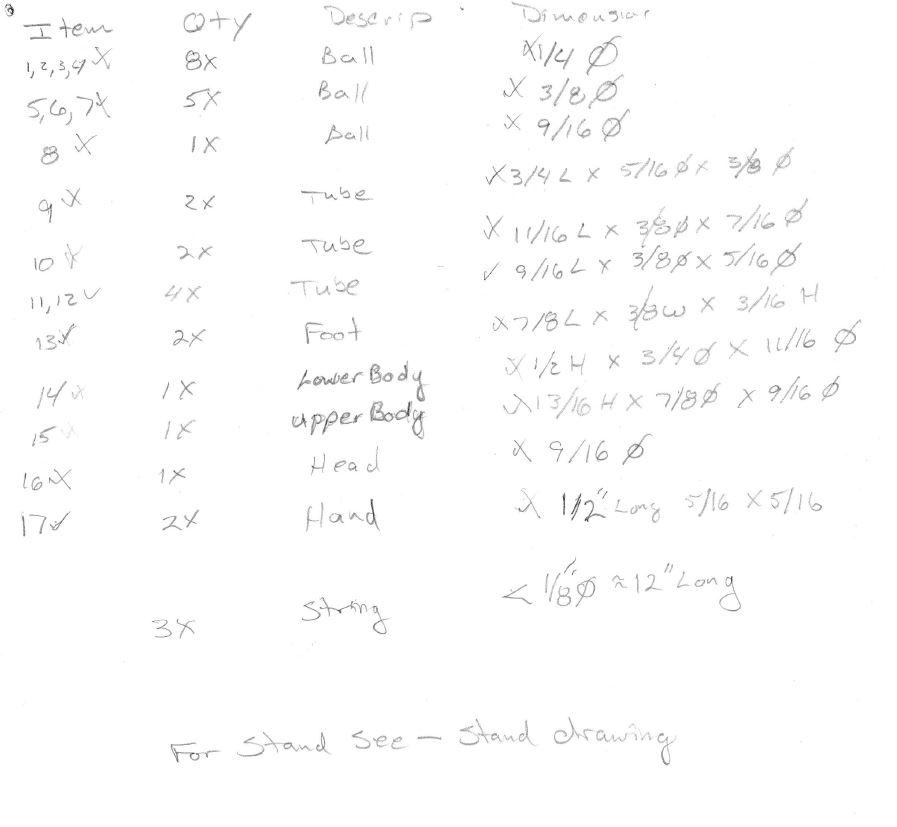 Item Qty Descrip Dimension
1,2,3,4 X 8X Ball X 1/4 Ø
5,6,7 X 5X Ball X 3/8 Ø
8 X 1X Ball X 9/16 Ø
9 X 2X Tube X 3/4 L X 5/16 Ø X 3/8 Ø
10 X 2X Tube X 11/16 L X 3/8 Ø X 7/16 Ø
11,12 ✓ 4X Tube ✓ 9/16 L X 3/8 Ø X 5/16 Ø
13 ✓ 2X Foot X 7/8 L X 3/8 W X 3/16 H
14 X 1X Lower Body X 1/2 H X 3/4 Ø X 11/16 Ø
15 X 1X Upper Body X 13/16 H X 7/8 Ø X 9/16 Ø
16 X 1X Head X 9/16 Ø
17 ✓ 2X Hand X 1/2" Long 5/16 X 5/16
3X String < 1/8" Ø ≈ 12" Long
For Stand See - Stand drawing